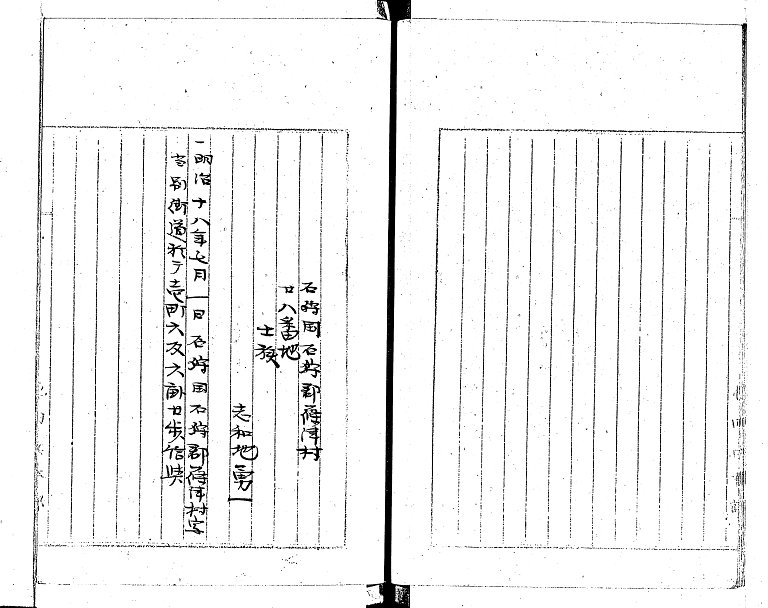 石狩国石狩郡篠津村
廿八番地
士族
志和地勇一
一明治十八年七月一日石狩国石狩郡篠津村字
当別街道於テ壱町六反六畝廿歩借